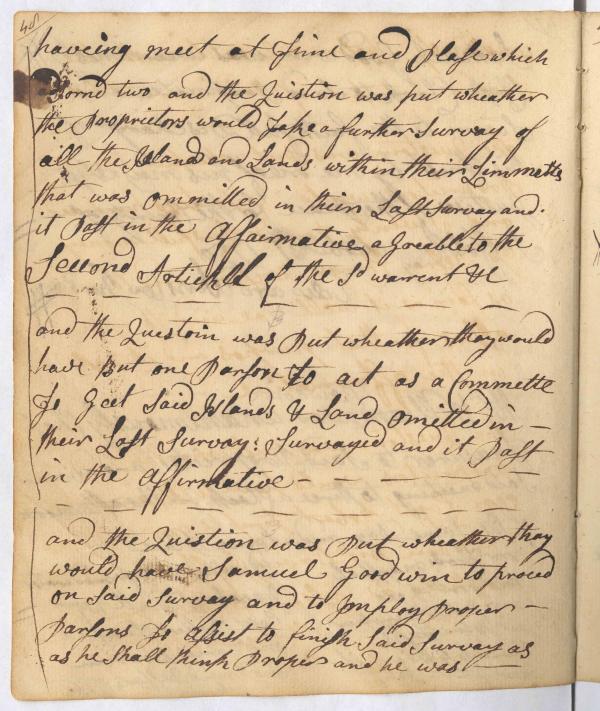 48
haveing meet at time and Plase which
adjornd two and the Quistion was put wheather
the Proprietors would take a further Survay of
all the Island and Lands within their Limmetts
that was ommitted in their Last Survay and
it Past in the Affairmative agreable to the
Second Artickll of the Sd warrent &c
and the Questoin was Put wheather thay would
have But one Parson to act as a Commette
to Geet Said Islands & Land omitted in
their Last Survay: Survayed and it Past
in the affirmative
and the Quistion was Put wheather thay
would have Samuel Goodwin to proced
on Said Survay and to Imploy Proper
Parsons to assist to finish Said Survay as
as he Shall think Proper and he was